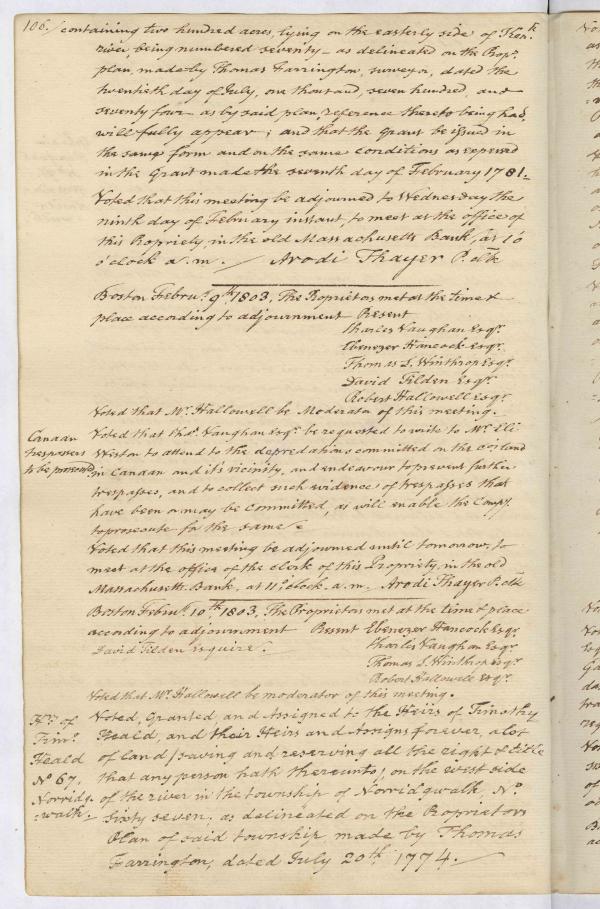 106. / containing two hundred acres, lying on the easterly side of Ken.k
river, being numbered seventy - as delineated on the Prop.rs
plan, made by Thomas Farrington, surveyor, dated the
twentieth day of July, one thousand, seven hundred, and
seventy four as by said plan, reference thereto being had,
will fully appear; and that the Grant be issued in
the same form and on the same conditions as expressed
in the Grant made the seventh day of February 1781.-
Voted that this meeting be adjourned to Wednesday the
ninth day of February instant, to meet at the office of
this Propriety, in the old Massachusetts Bank, at 10
o'clock a.m. / Arodi Thayer P. Clk
Boston Febru.y 9.th 1803. The Proprietors met at the time &
place according to adjournment Present
Charles Vaughan Esq.r
Ebenezer Hancock Esq.r
Thomas L. Winthrop Esq.r
David Tilden Esq.r
Robert Hallowell Esq.r
Voted that M.r Hallowell be Moderator of this meeting.
Canaan
trespassers
to be prosecuted
Voted that Cha.s Vaughan Esq.r be requested to write to M.r Eli
Weston to attend to the depredations committed on the Co.s land
in Canaan and its vicinity, and endeavour to prevent further
trespasses, and to collect such evidence of trespasses that
have been or may be committed, as will enable the Comp.y
to prosecute for the same
Voted that this meeting be adjourned until tomorrow, to
meet at the office of the clerk of this Propriety, in the old
Massachusetts Bank, at 11 o'clock. a.m. Arodi Thayer P. Clk
Boston Febru.y 10.th 1803. The Proprietors met at the time & place
according to adjournment Present Ebenezer Hancock Esq.r
David Tilden Esquire. Charles Vaughan Esq.r
Thomas L. Winthrop Esq.r
Robert Hallowell Esq.r
Voted that M.r Hallowell be moderator of this meeting.
H.rs of
Tim.o
Heald
N.o 67,
Norridg-
-walk.
Voted, Granted, and Assigned to the Heirs of Timothy
Heald, and their Heirs and Assigns forever, a lot
of land / saving and reserving all the right & title
that any person hath thereunto /, on the west side
of the river in the township of Norridgwalk, N.o
Sixty seven, as delineated on the Proprietors
Plan of said township, made by Thomas
Farrington, dated July 20.th 1774. /